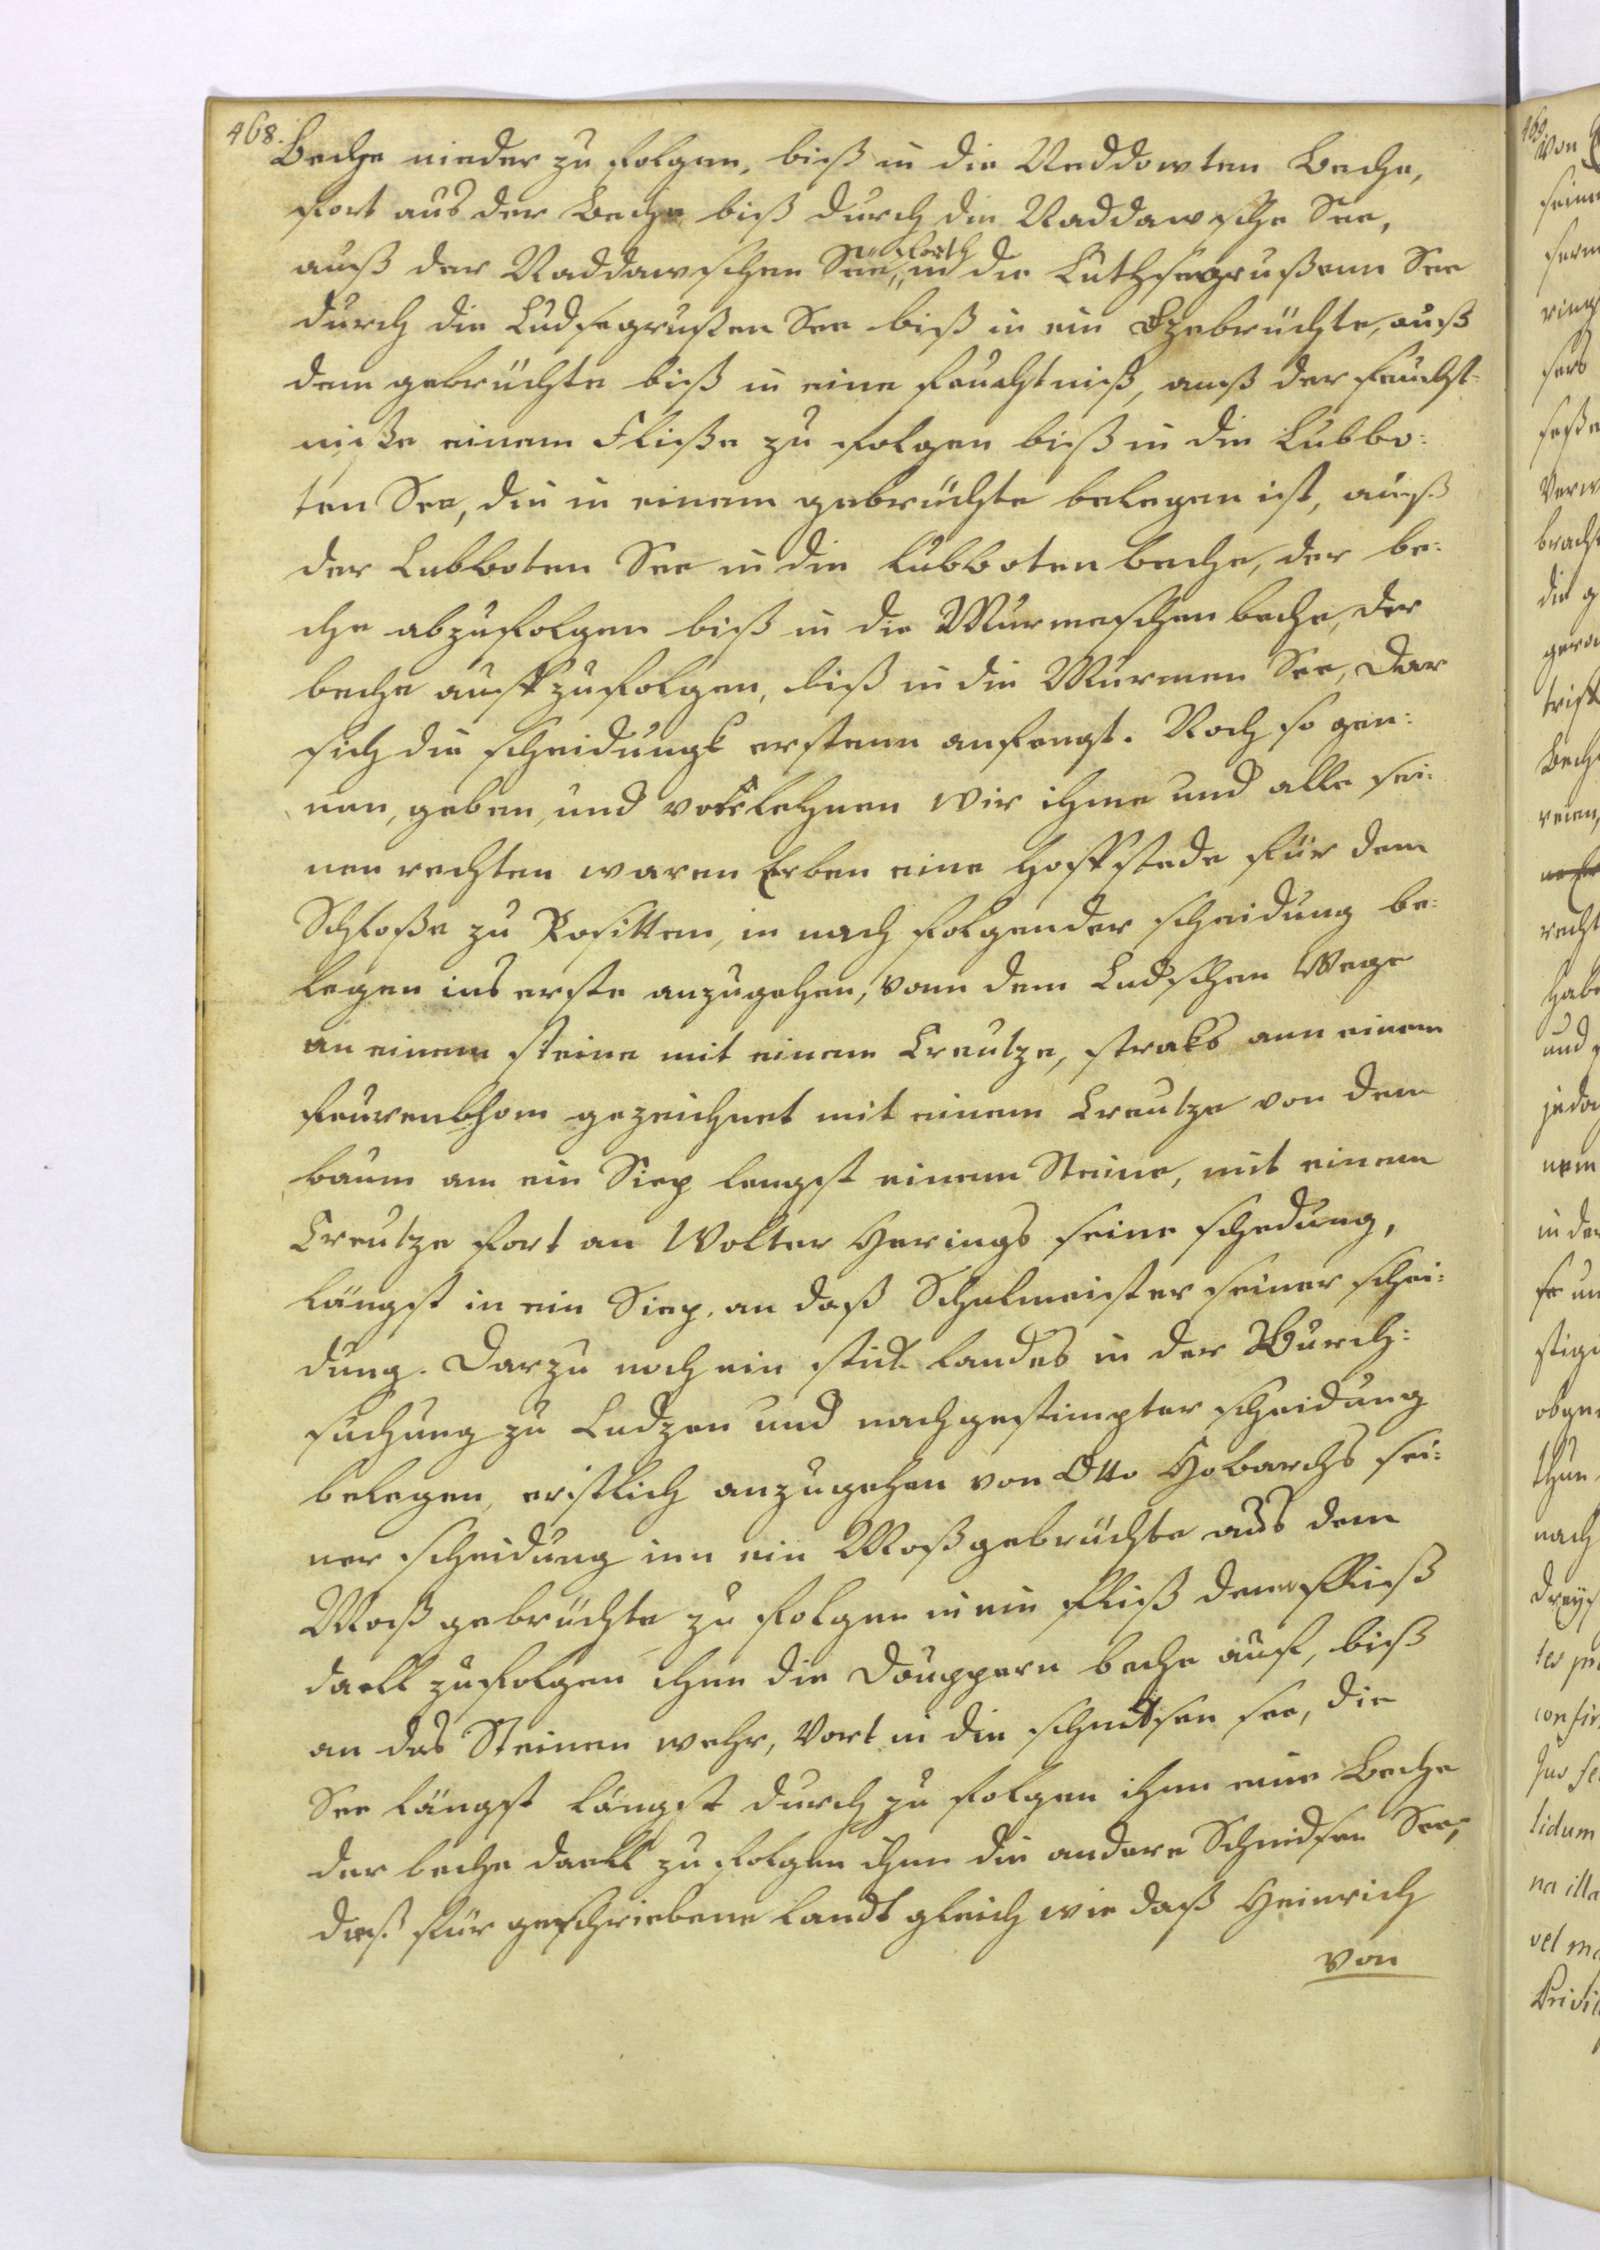 468.
Beche nieder zu folgen, biß in die Neddowten Beche,
fort aus der Beche biß durch die Naddawsche See,
auß der Naddawschen See, forth in die Luthsegrußenn See
durch die Ludsegrußen See biß in ein gebrüchte, auß
dem gebrüchte biß in eine feuchtniß, auß der feucht-
niße einem Fließe zu folgen biß in die Lubbo:
ten See, die in einem gebrüchte belegen ist, auß
der Lubboten See in die Lubboten beche, der be:
che abzufolgen biß in die Murmeschen beche, der
beche auffzufolgen, biß in die Murmen See, dar
sich die scheidungk erstenn anfengt. Noch so gön:
nen, geben, und vorlehnen wir ihme und alle sei:
nen rechten waren Erben eine Hoffstede für dem
Schloße zu Rositten, in nach folgender scheidung be:
legen ins erste anzugehen, vonn dem Ludschen Wege
an einem steine mit einem Creutze, straks ann einem
feurenbhom gezeichnet mit einem Creutze von dem
baum am ein Siep lengst einem Steine, mit einem
Creutze fort an Wolter Herings seine schedung,
längst in ein Siep, an daß Schulmeister seiner schei:
dung. Darzu noch ein stück landes in der Burch:
suchung zu Ludzen und nachgestimpter scheidung
belegen, eristlich anzugehen von Otto Hobarchs sei:
ner scheidung inn ein Moßgebrüchte aus dem
Moßgebrüchte zu folgen in ein fließ dem fließ
daell zufolgen ihnn die Douppern beche auf, biß
an das Steinen wehr, Vort in die schnittsen see, die
See längst längst durch zu folgen ihnn eine Beche
der beche daell zu folgen ihnn die andere Schnidsen See,
diß für geschriebene landt gleich wie daß Heinrich
von